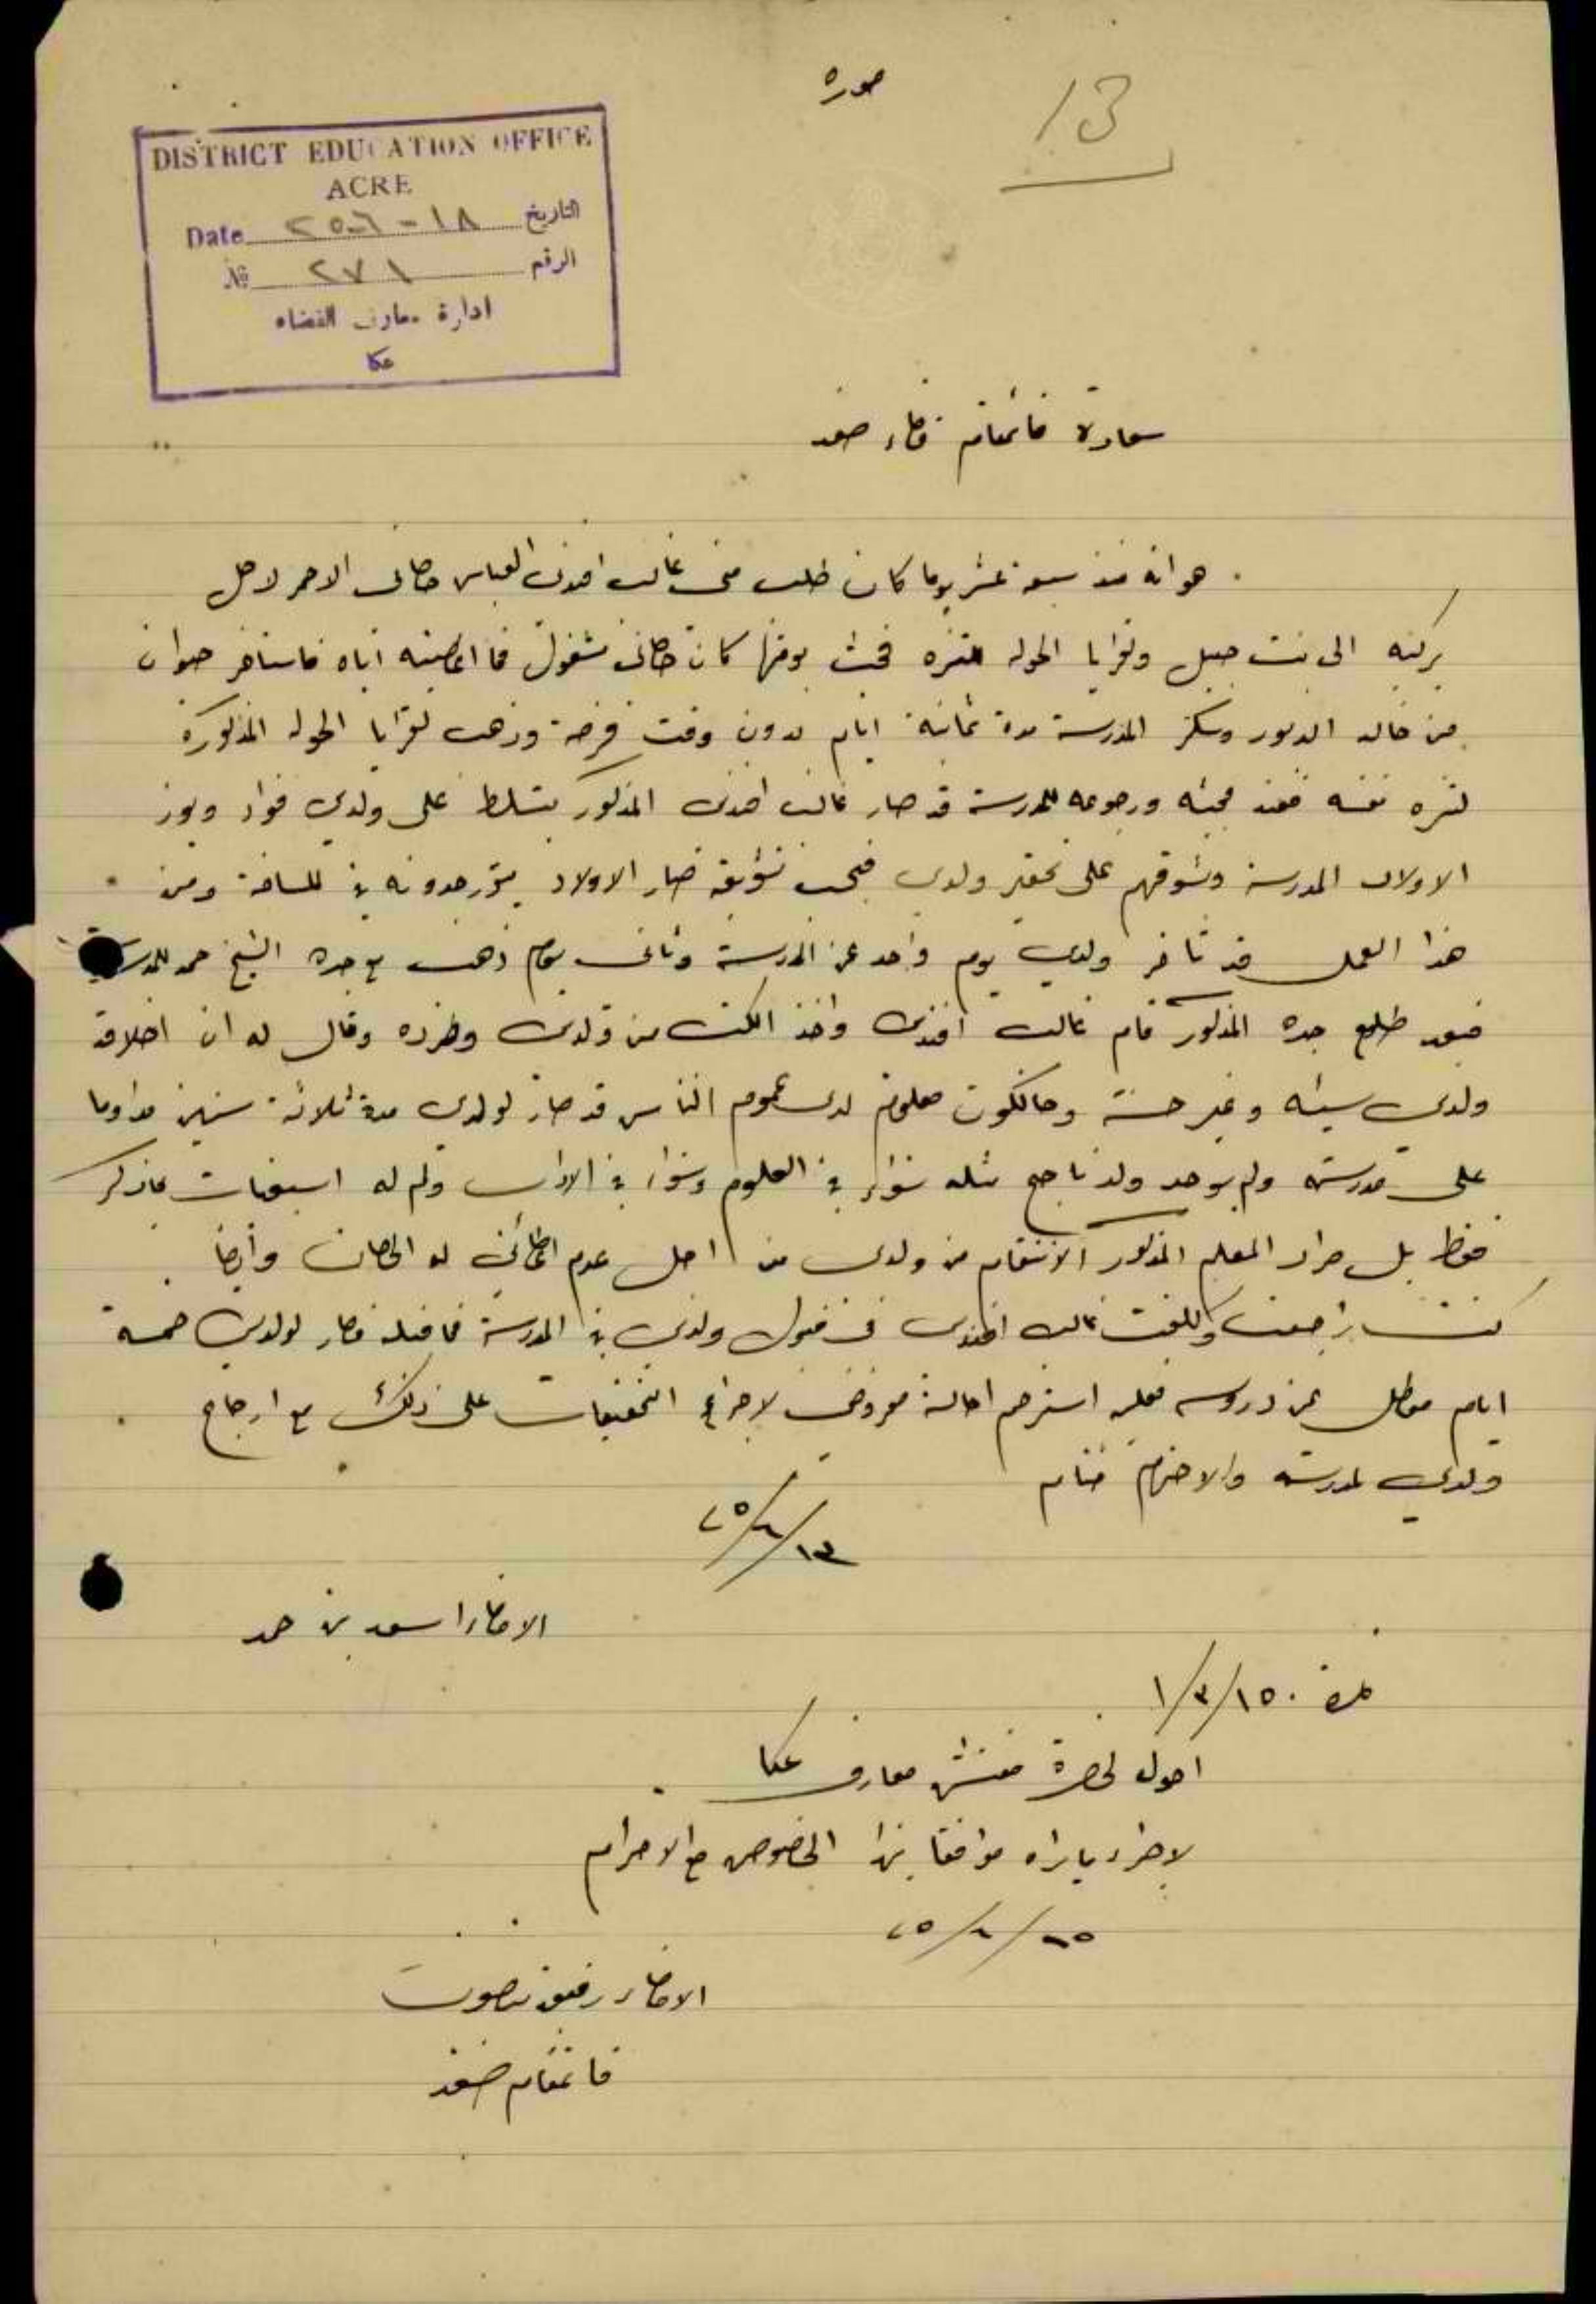 صوره
13
DISTRICT EDUCATION OFFICE
ACRE
Date ١٨-٦-٢٥ التاريخ
№ ٢٧١ الرقم
ادارة معارف القضاء
عكا
سعادة قائمقام قضاء صفد
هو انه منذ سبعة عشر يوما كان طلب مني غالب افندي العباس حصاني الاحمر لاجل
يركبه الى بنت جبيل وقرايا الحوله للتنزه فحيث يومها كان حصاني مشغول فما اعطيته اياه فاستاجر حيوان
من خالد الدبور وسكر المدرسة مدة ثمانية ايام بدون وقت فرصة وذهب لقرايا الحوله المذكورة
لتنزه نفسه فعند مجيئه ورجوعه للمدرسة قد صار غالب افندي المذكور يتسلط على ولدي فواد ويوز
الاولاد المدرسة ويشوقهم على تحقير ولدي فبحسب تشويقه صار الاولاد في المسافة ومن
هذا العمل قد تأخر ولدي يوم واحد عن المدرسة وثاني يوم ذهب مع جده الشيخ حمد للمدرسة
فبعد طلوع جده المذكور قام غالب افندي واخذ الكتب من ولدي وطرده وقال له ان اخلاق
ولدي سيئه وغير حسنة وحالكون معلوم لدى عموم الناس قد صار لولدي مدة ثلاثة سنين مداوما
على مدرسته ولم يوجد ولد ناجح مثله سواء في العلوم وسواء في الاداب ولم له اسبقيات بما ذكر
فقط بل مراد المعلم المذكور الانتقام من ولدي من اجل عدم اعطائي له الحصان وأيضا
كنت راجعت وكلفت غالب افندي في قبول ولدي في المدرسة فما قبله فصار لولدي خمسة
ايام معطل عن دروسه فعليه استرحم احالة معروضي لاجراء التحقيقات على ذلك مع ارجاع
ولدي لمدرسته والاحترام ختام
١٣/٦/٢٥
الامضاء اسعد بن حمد
نمرة ١/٣/١٥٠
احول لحضرة مفتش معارف عكا
لاجراء ما يراه موافقا بهذا الخصوص مع الاحترام
١٥/٦/٢٥
الامضاء رفيق بيضون
قائمقام صفد